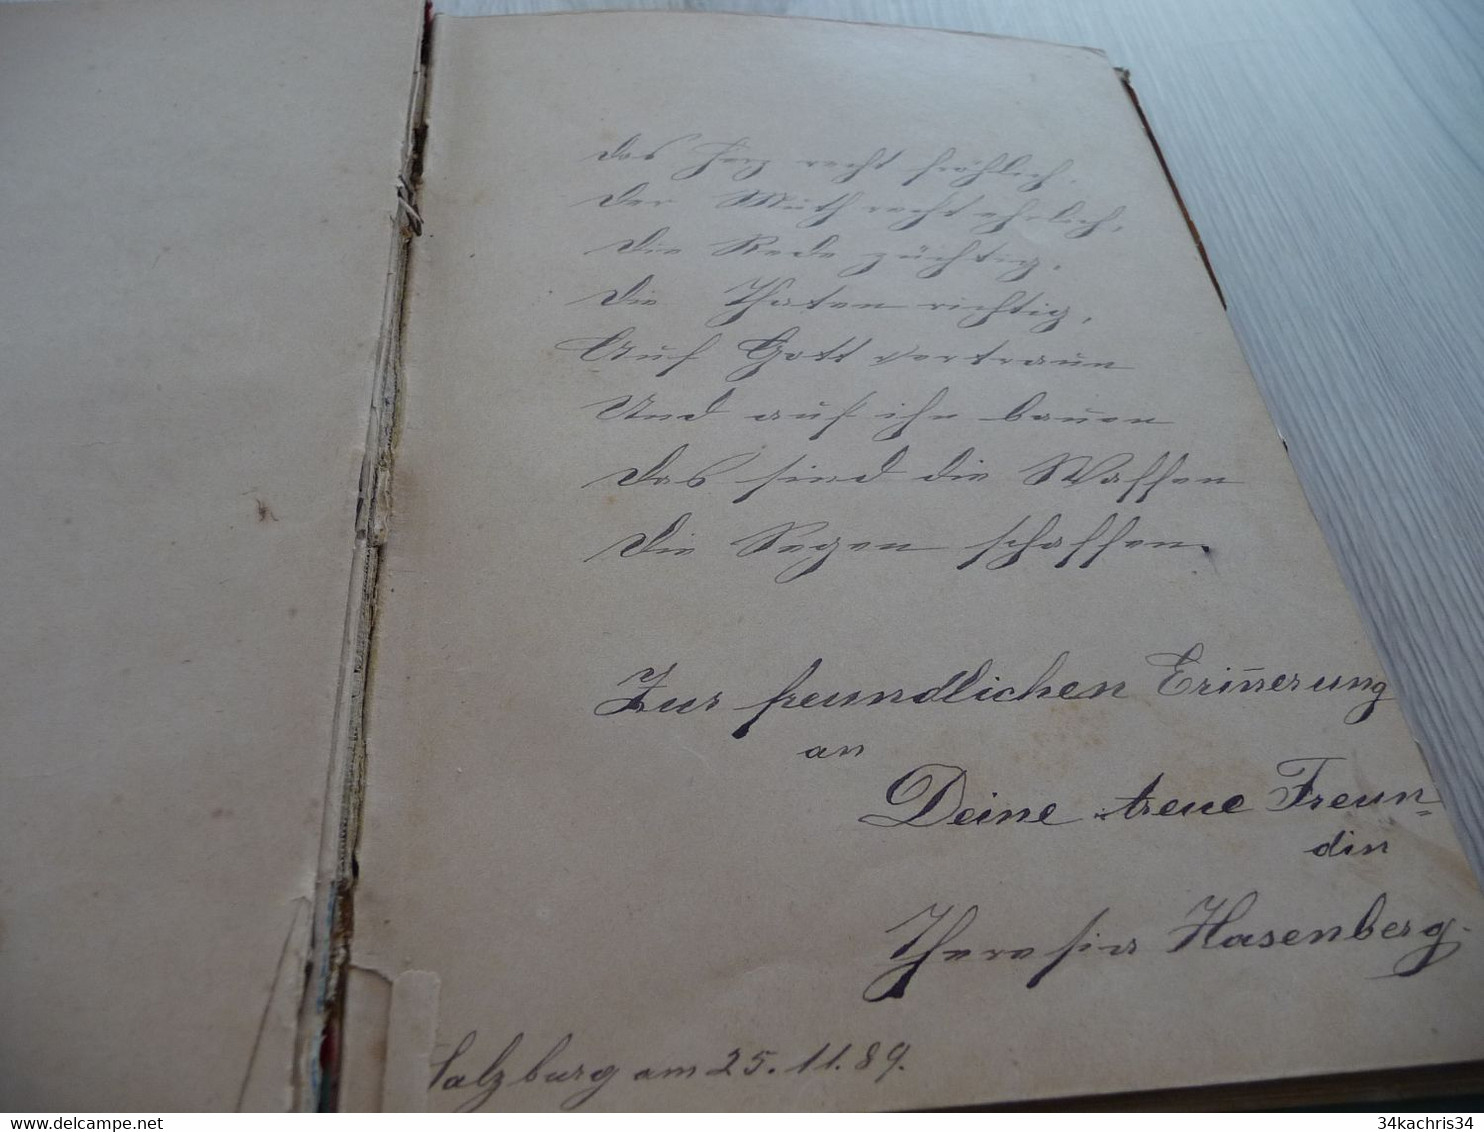 Das Herz recht fröhlich.
Der Muth recht ehrlich,
Die Rede züchtig,
Die Thaten richtig,
Auf Gott vertraun
Und auf ihn bauen
Das sind die Waffen
Die Segen schaffen.
Zur freundlichen Erin̄erung
an
Deine treue Freun=
din
Theresia Hasenberg.
Salzburg am 25.11.89.
delcampe.net
34kachris34